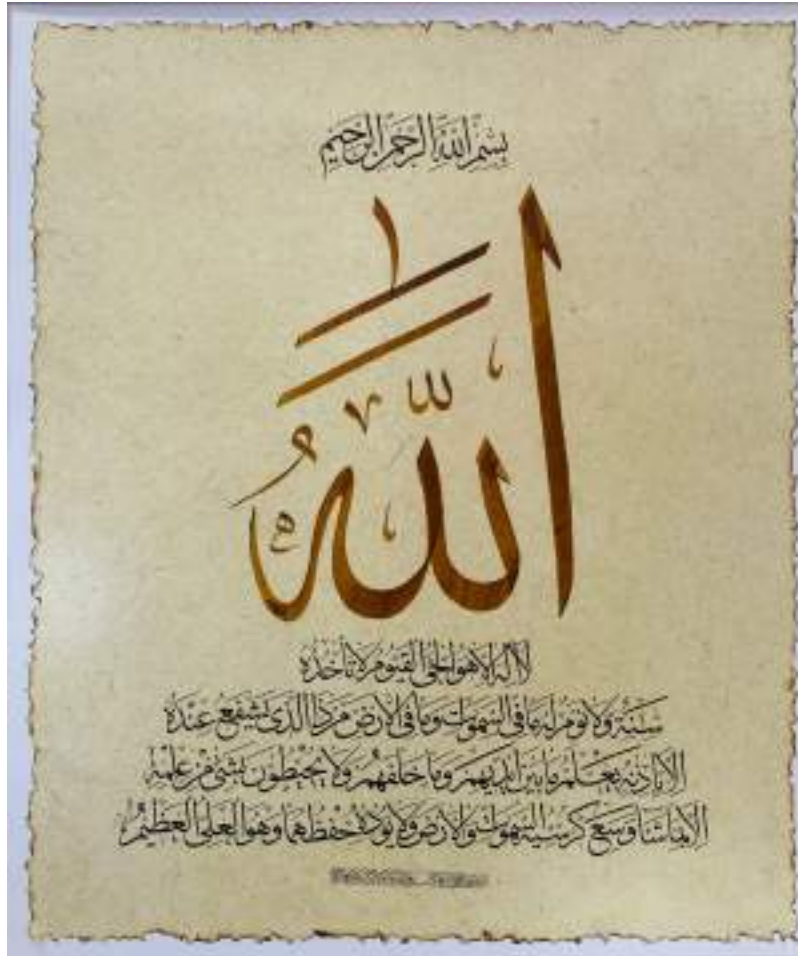 بسم الله الرحمن الرحيم
الله
لا اله الا هو الحي القيوم لا تأخذه
سنة ولا نوم له ما في السموات وما في الارض من ذا الذي يشفع عنده
الا باذنه يعلم ما بين ايديهم وما خلفهم ولا يحيطون بشئ من علمه
الا بما شا وسع كرسيه السموات والارض ولا يوده حفظهما وهو العلي العظيم